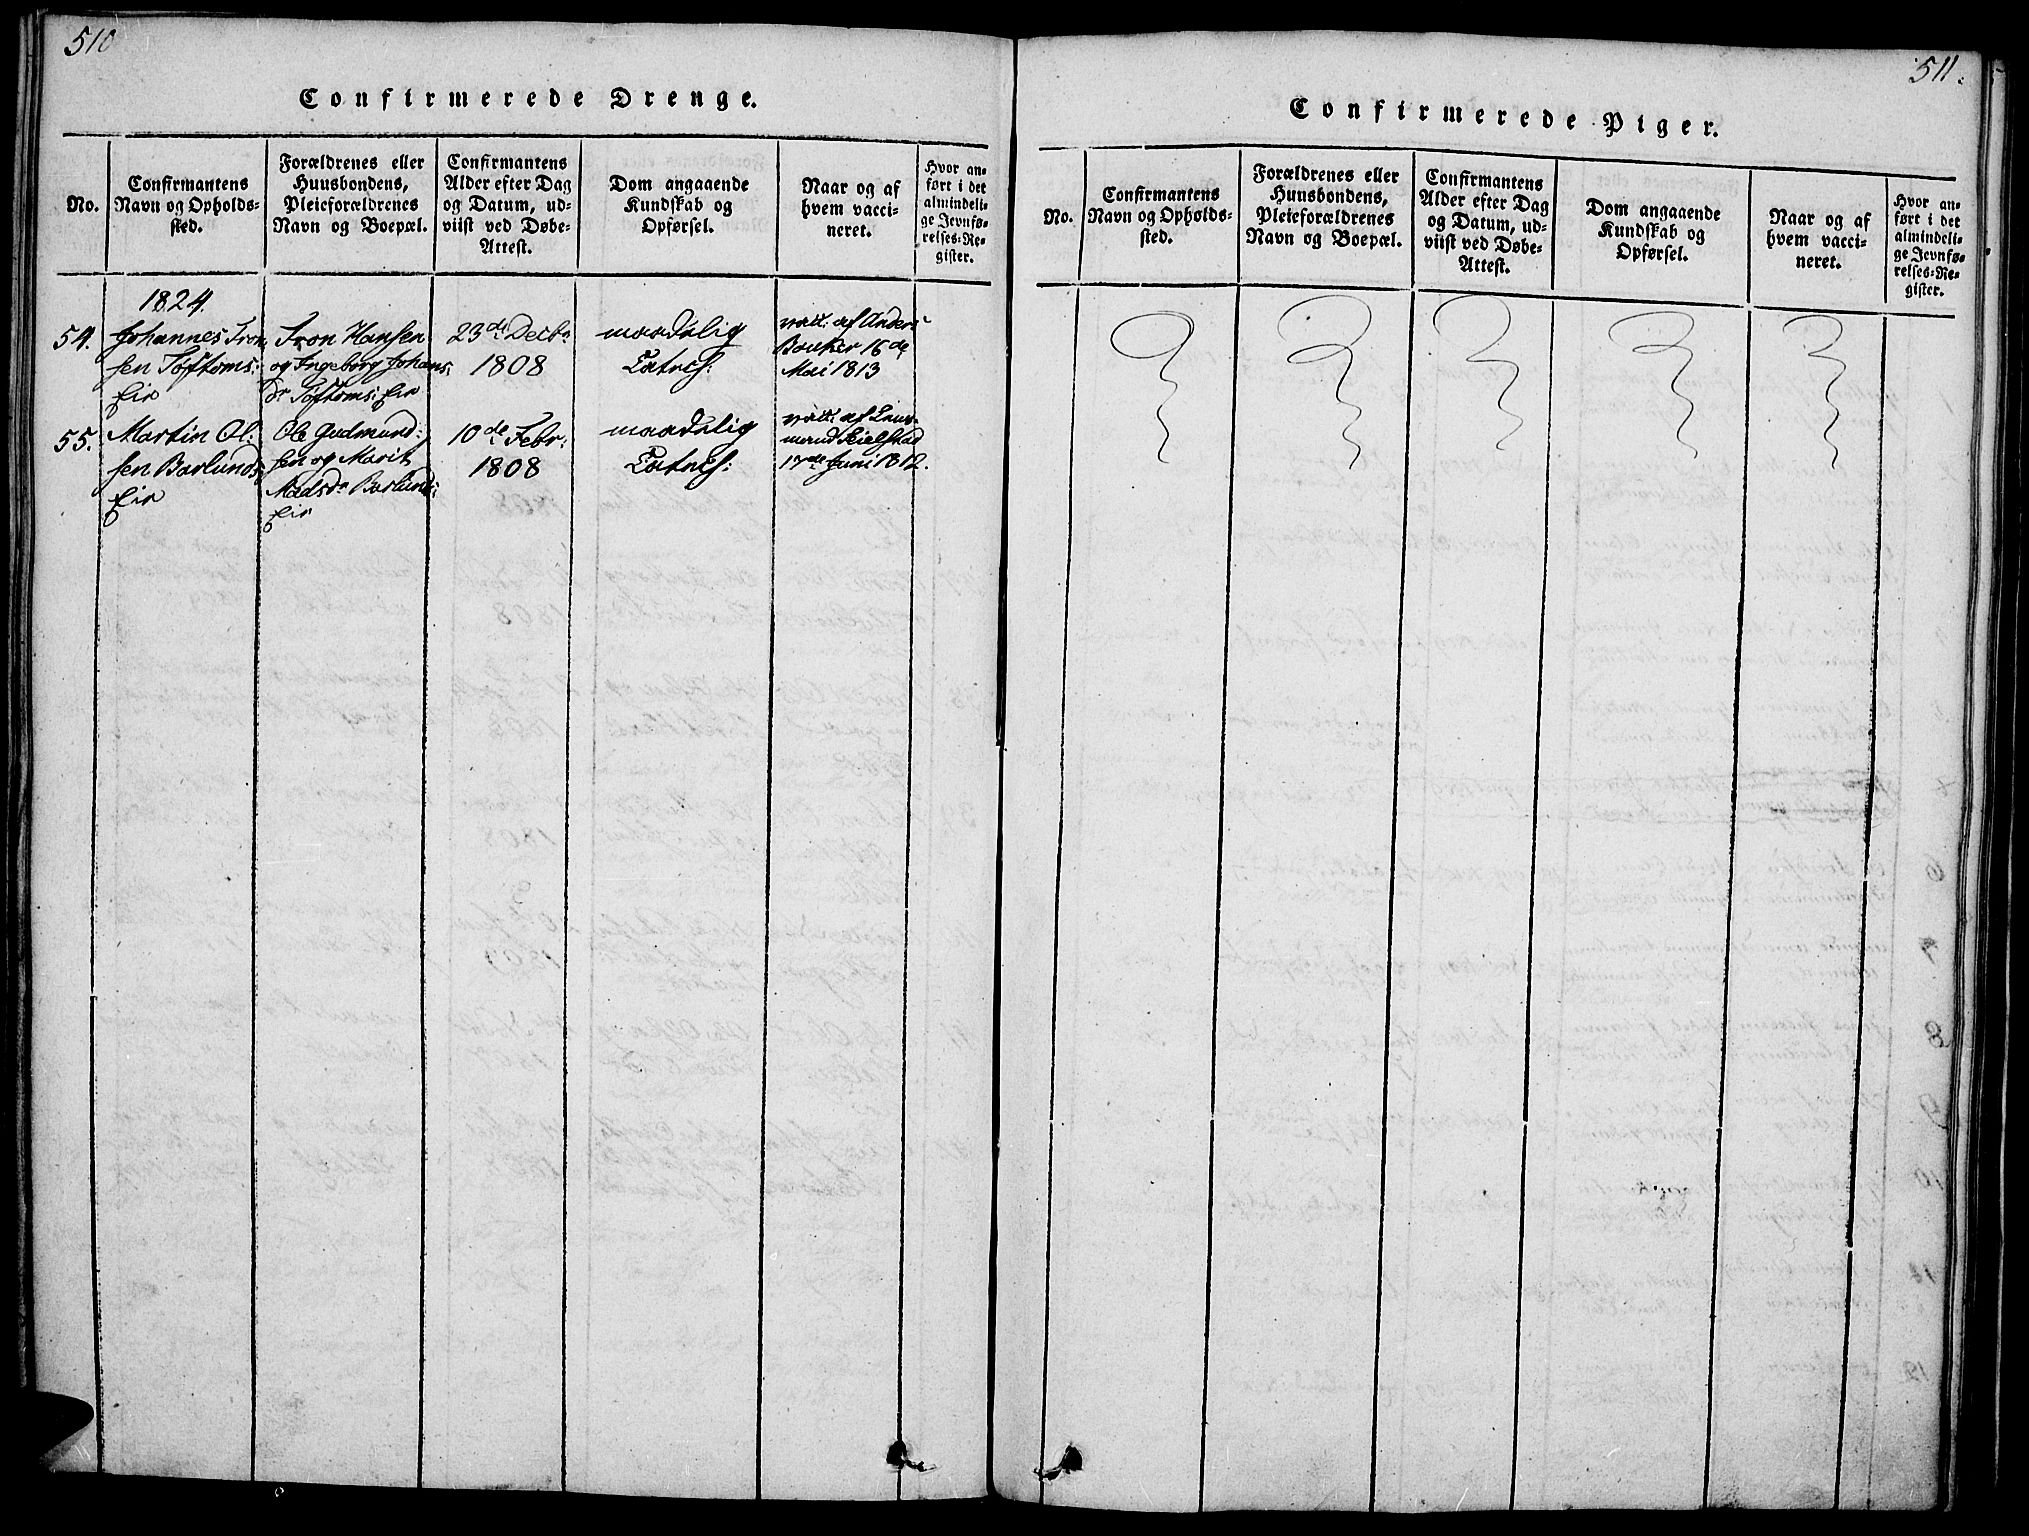 510
Confirmerede Drenge.
No.
Confirmantens
Navn og Opholds-
sted.
Forældrenes eller
Huusbondens,
Pleieforældrenes
Navn og Boepæl.
Confirmantens
Alder efter Dag
og Datum, ud-
viist ved Døbe-
Attest.
Dom angaaende
Kundskab og
Opførsel.
Naar og af
hvem vacci-
neret.
Hvor an-
ført i det
almindeli-
ge Jevnfø-
relses-Re-
gister.
1824.
54.
Johannes Iver
sen Toftoms:
Eie
Iver Hansen
og Ingeborg Johans
Dr Toftoms: Eie
23de Decbr
1808
maadelig
vacc: af Anders
16de
Mai 1813
55.
Martin Ol:
sen Borlunds
Eie
Ole Gudmund:
sen og Marit
Madsdr Borlund:
Eie
10de Febr:
1808
maadelig
vacc: af Lens-
mand Kielstad
17de Juni 1812.
511.
Confirmerede Piger.
No.
Confirmantens
Navn og Opholds-
sted.
Forældrenes eller
Huusbondens,
Pleieforældrenes
Navn og Boepæl.
Confirmantens
Alder efter Dag
og Datum, ud-
viist ved Døbe-
Attest.
Dom angaaende
Kundskab og
Opførsel.
Naar og af
hvem vacci-
neret.
Hvor an-
ført i det
almindeli-
ge Jevnfø-
relses-Re-
gister.